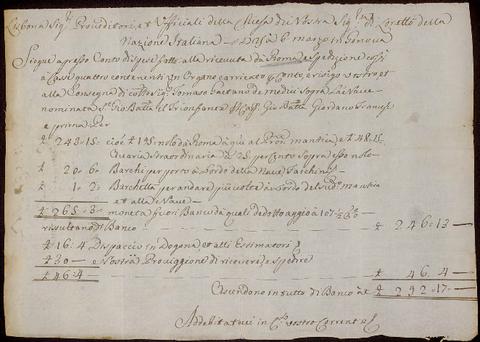 Lisbona Sig.ri Proveditori, et Ufficiali della Chiesa di Nostra Sig.ra di Loretto della
Nazione Italiana — Adi 6 marzo in Genova
Siegue apresso Conto di spese fatte alla ricevuta da Roma, e spedizione costì
di Casse quattro contenenti un Organo carricato conto, e risigo vostro et
alla Consegna di Gaetano de medici sopra la Nave
nominata S. Gio Batta Gio Batta Giordano Francese
e prima Per
£ 243.15: cioè £ 195 nolo da Roma quà al mantica, e £ 48.15
Avaria straordinaria à 25 per Cento sopra esso nolo
£ 20.6: Barchi per porto à bordo della Nave, e facchini
£ 1.2: Barchetta per andare più volte à bordo del mantica
et alla Nave
£ 265.3: moneta fuori Banco da quali dedotto aggio à 107
rissultano di Banco — £ 246.13 —
£ 16.4 Dispaccio in Dogana et alli Estimatori
£ 30 — e Nostra Proviggione di ricevere, e spedire
£ 46.4 — £ 46.4 —
Ascendono in tutto di Banco à £ 292.17 —
Addebitatuci in C.o vostro Corrente